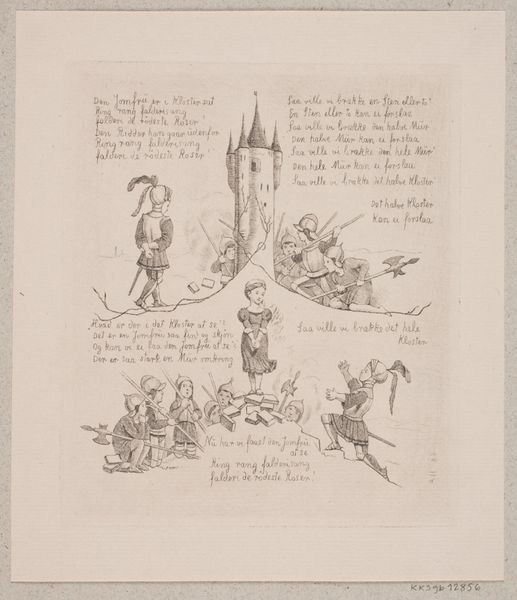 Den Jomfrü er i Kloster sat
Ring rang falderisang
falderi de rödeste Roser!
Den Ridder han gaar udenfor
Ring rang falderisang
falderi de rödeste Roser!
Saa ville vi brække en Sten eller to!
En Sten eller to kan ei forslaa
Saa ville vi brække den halve Mür
Den halve Mür kan ei forslaa
Saa ville vi brække den hele Mür!
Den hele Mür kan ei forslaa
Saa ville vi brække det halve Kloster
Det halve Kloster
kan ei forslaa
Hvad er der i det Kloster at se'!
Det er en Jomfrü saa fin og skjön
Og kan vi ei faa den Jomfrü at se'!
Der er saa stærk en Mür omkring
Saa ville vi brække det hele
Kloster
Nü har vi faaet den Jomfrü
at se
Ring rang falderisang,
falderi de rödeste Roser!
KKSgb 12856